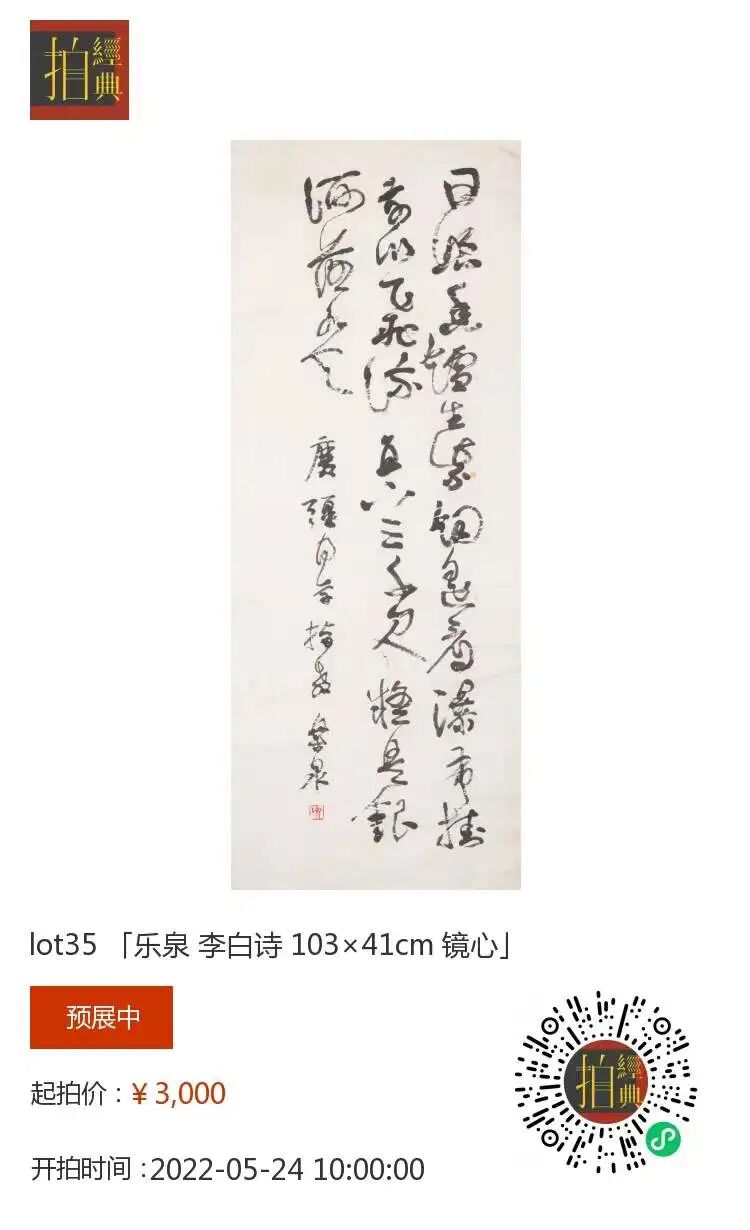 拍
經典
日照香鑪生紫烟遥看瀑布挂
前川飛流直下三千尺疑是銀
河落九天
同学指教 樂泉
lot35 「乐泉 李白诗 103×41cm 镜心」
预展中
起拍价：¥ 3,000
开拍时间：2022-05-24 10:00:00
拍
經典